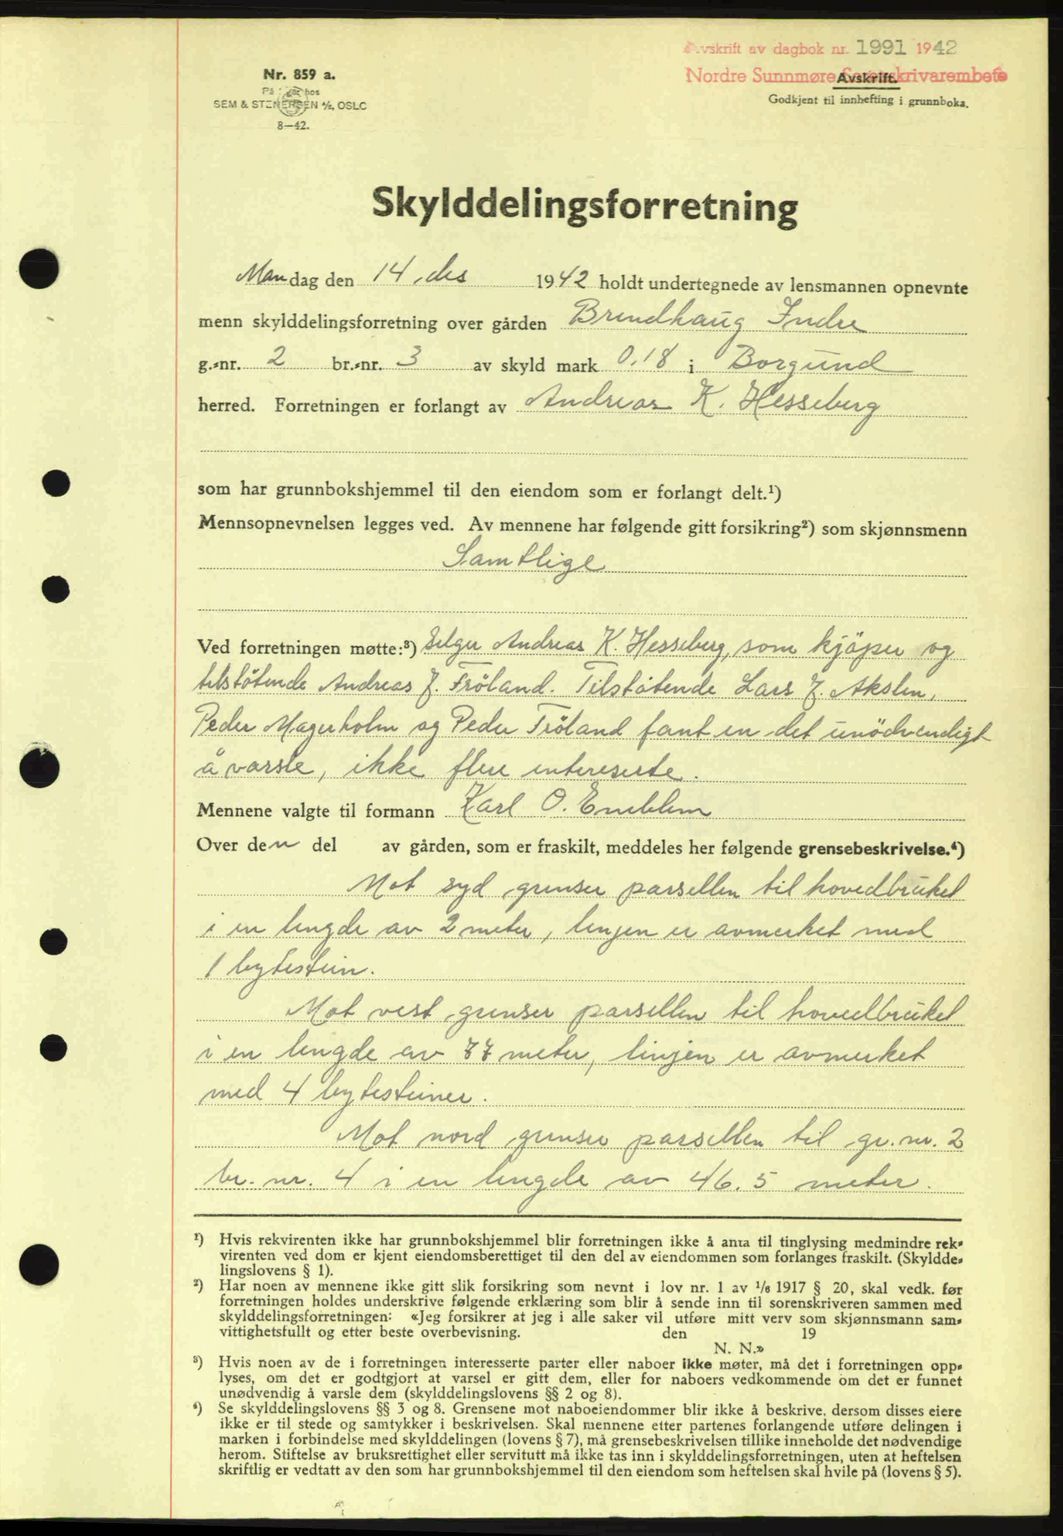 Avskrift av dagbok nr. 1991 1942
Nordre Sunnmøre Sorenskrivarembete
Avskrift.
Godkjent til innhefting i grunnboka.
Nr. 859 a.
På lager hos
SEM & STENERSEN A/S, OSLO
8—42.
Skylddelingsforretning
Mandag den 14. des 1942 holdt undertegnede av lensmannen opnevnte
menn skylddelingsforretning over gården Brundhaug Indre
g.-nr. 2 br.-nr. 3 av skyld mark 0.18 i Borgund
herred. Forretningen er forlangt av Andreas K. Hesseberg
som har grunnbokshjemmel til den eiendom som er forlangt delt.¹)
Mennsopnevnelsen legges ved. Av mennene har følgende gitt forsikring²) som skjønnsmenn
Samtlige
Ved forretningen møtte:³) Selger Andreas K. Hesseberg, som kjöper og
tilstötende Andreas J. Fröland. Tilstötende Lars J. Akslen,
Peder Magerholm og Peder Fröland fant en det unödvendigt
å varsle, ikke flere intereserte.
Mennene valgte til formann Karl O. Emblem
Over den del av gården, som er fraskilt, meddeles her følgende grensebeskrivelse.⁴)
Mot syd grenser parsellen til hovedbruket
i en lengde av 2 meter, linjen er avmerket med
1 bytestein.
Mot vest grenser parsellen til hovedbruket
i en lengde av 77 meter, linjen er avmerket
med 4 bytesteiner.
Mot nord grenser parsellen til gr. nr. 2
br. nr. 4 i en lengde av 46.5 meter.
¹) Hvis rekvirenten ikke har grunnbokshjemmel blir forretningen ikke å anta til tinglysing medmindre rek-
virenten ved dom er kjent eiendomsberettiget til den del av eiendommen som forlanges fraskilt. (Skyldde-
lingslovens § 1).
²) Har noen av mennene ikke gitt slik forsikring som nevnt i lov nr. 1 av 1/6 1917 § 20, skal vedk. før
forretningen holdes underskrive følgende erklæring som blir å sende inn til sorenskriveren sammen med
skylddelingsforretningen: «Jeg forsikrer at jeg i alle saker vil utføre mitt verv som skjønnsmann sam-
vittighetsfullt og etter beste overbevisning. den 19
N. N.»
³) Hvis noen av de i forretningen interesserte parter eller naboer ikke møter, må det i forretningen opp-
lyses, om det er godtgjort at varsel er gitt dem, eller for naboers vedkommende om det er funnet
unødvendig å varsle dem (skylddelingslovens §§ 2 og 8).
⁴) Se skylddelingslovens §§ 3 og 8. Grensene mot naboeiendommer blir ikke å beskrive, dersom disses eiere
ikke er til stede og samtykker i beskrivelsen. Skal mennene etter partenes forlangende utføre delingen i
marken i forbindelse med skylddelingen (lovens § 7), må grensebeskrivelsen tillike inneholde det nødvendige
herom. Stiftelse av bruksrettighet eller servitutt må ikke tas inn i skylddelingsforretningen, uten at heftelsen
skriftlig er vedtatt av den som har grunnbokshjemmel til den eiendom som heftelsen skal hvile på (lovens § 5).